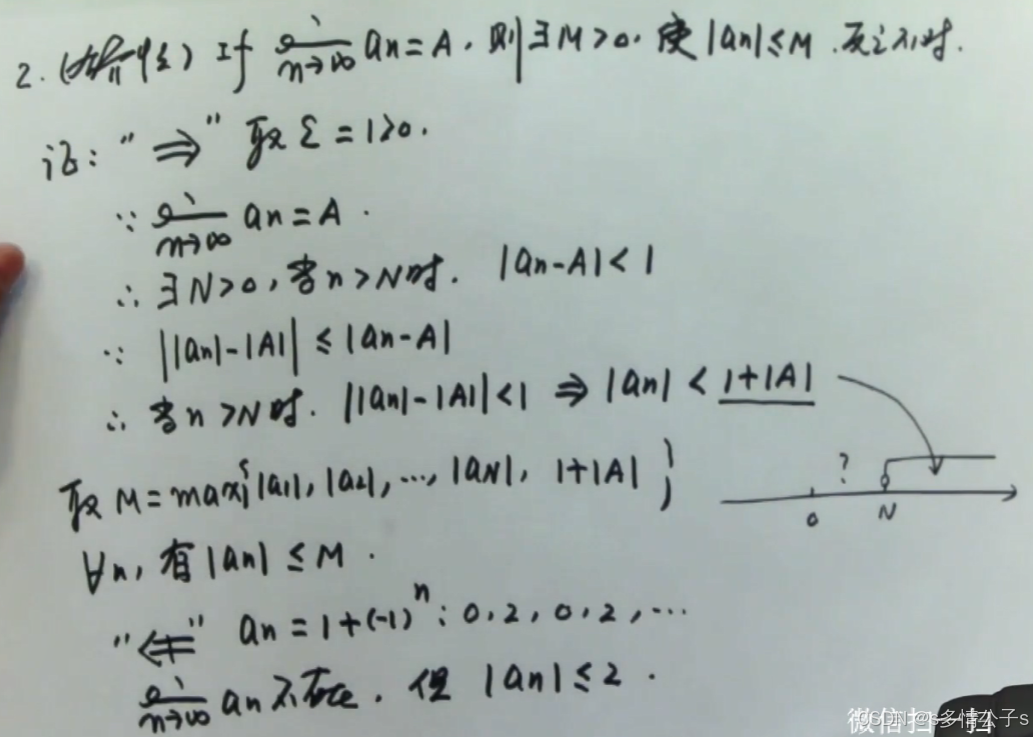 2. (有界性) If lim n→∞ an = A, 则∃M>0, 使|an|≤M. 反之不对.
证: "⇒" 取 ε = 1>0.
∵ lim n→∞ an = A.
∴ ∃N>0, 当n>N时. |an-A|<1
∵ ||an|-|A|| ≤ |an-A|
∴ 当n>N时. ||an|-|A||<1 ⇒ |an| < 1+|A|
取 M = max{|a1|, |a2|, ..., |aN|, 1+|A|}
?
0 N
∀n, 有|an| ≤ M.
"⇍" an = 1+(-1)^n : 0, 2, 0, 2, ...
lim n→∞ an 不存在, 但 |an| ≤ 2.
微信扫一扫
CSDN @s多情公子s